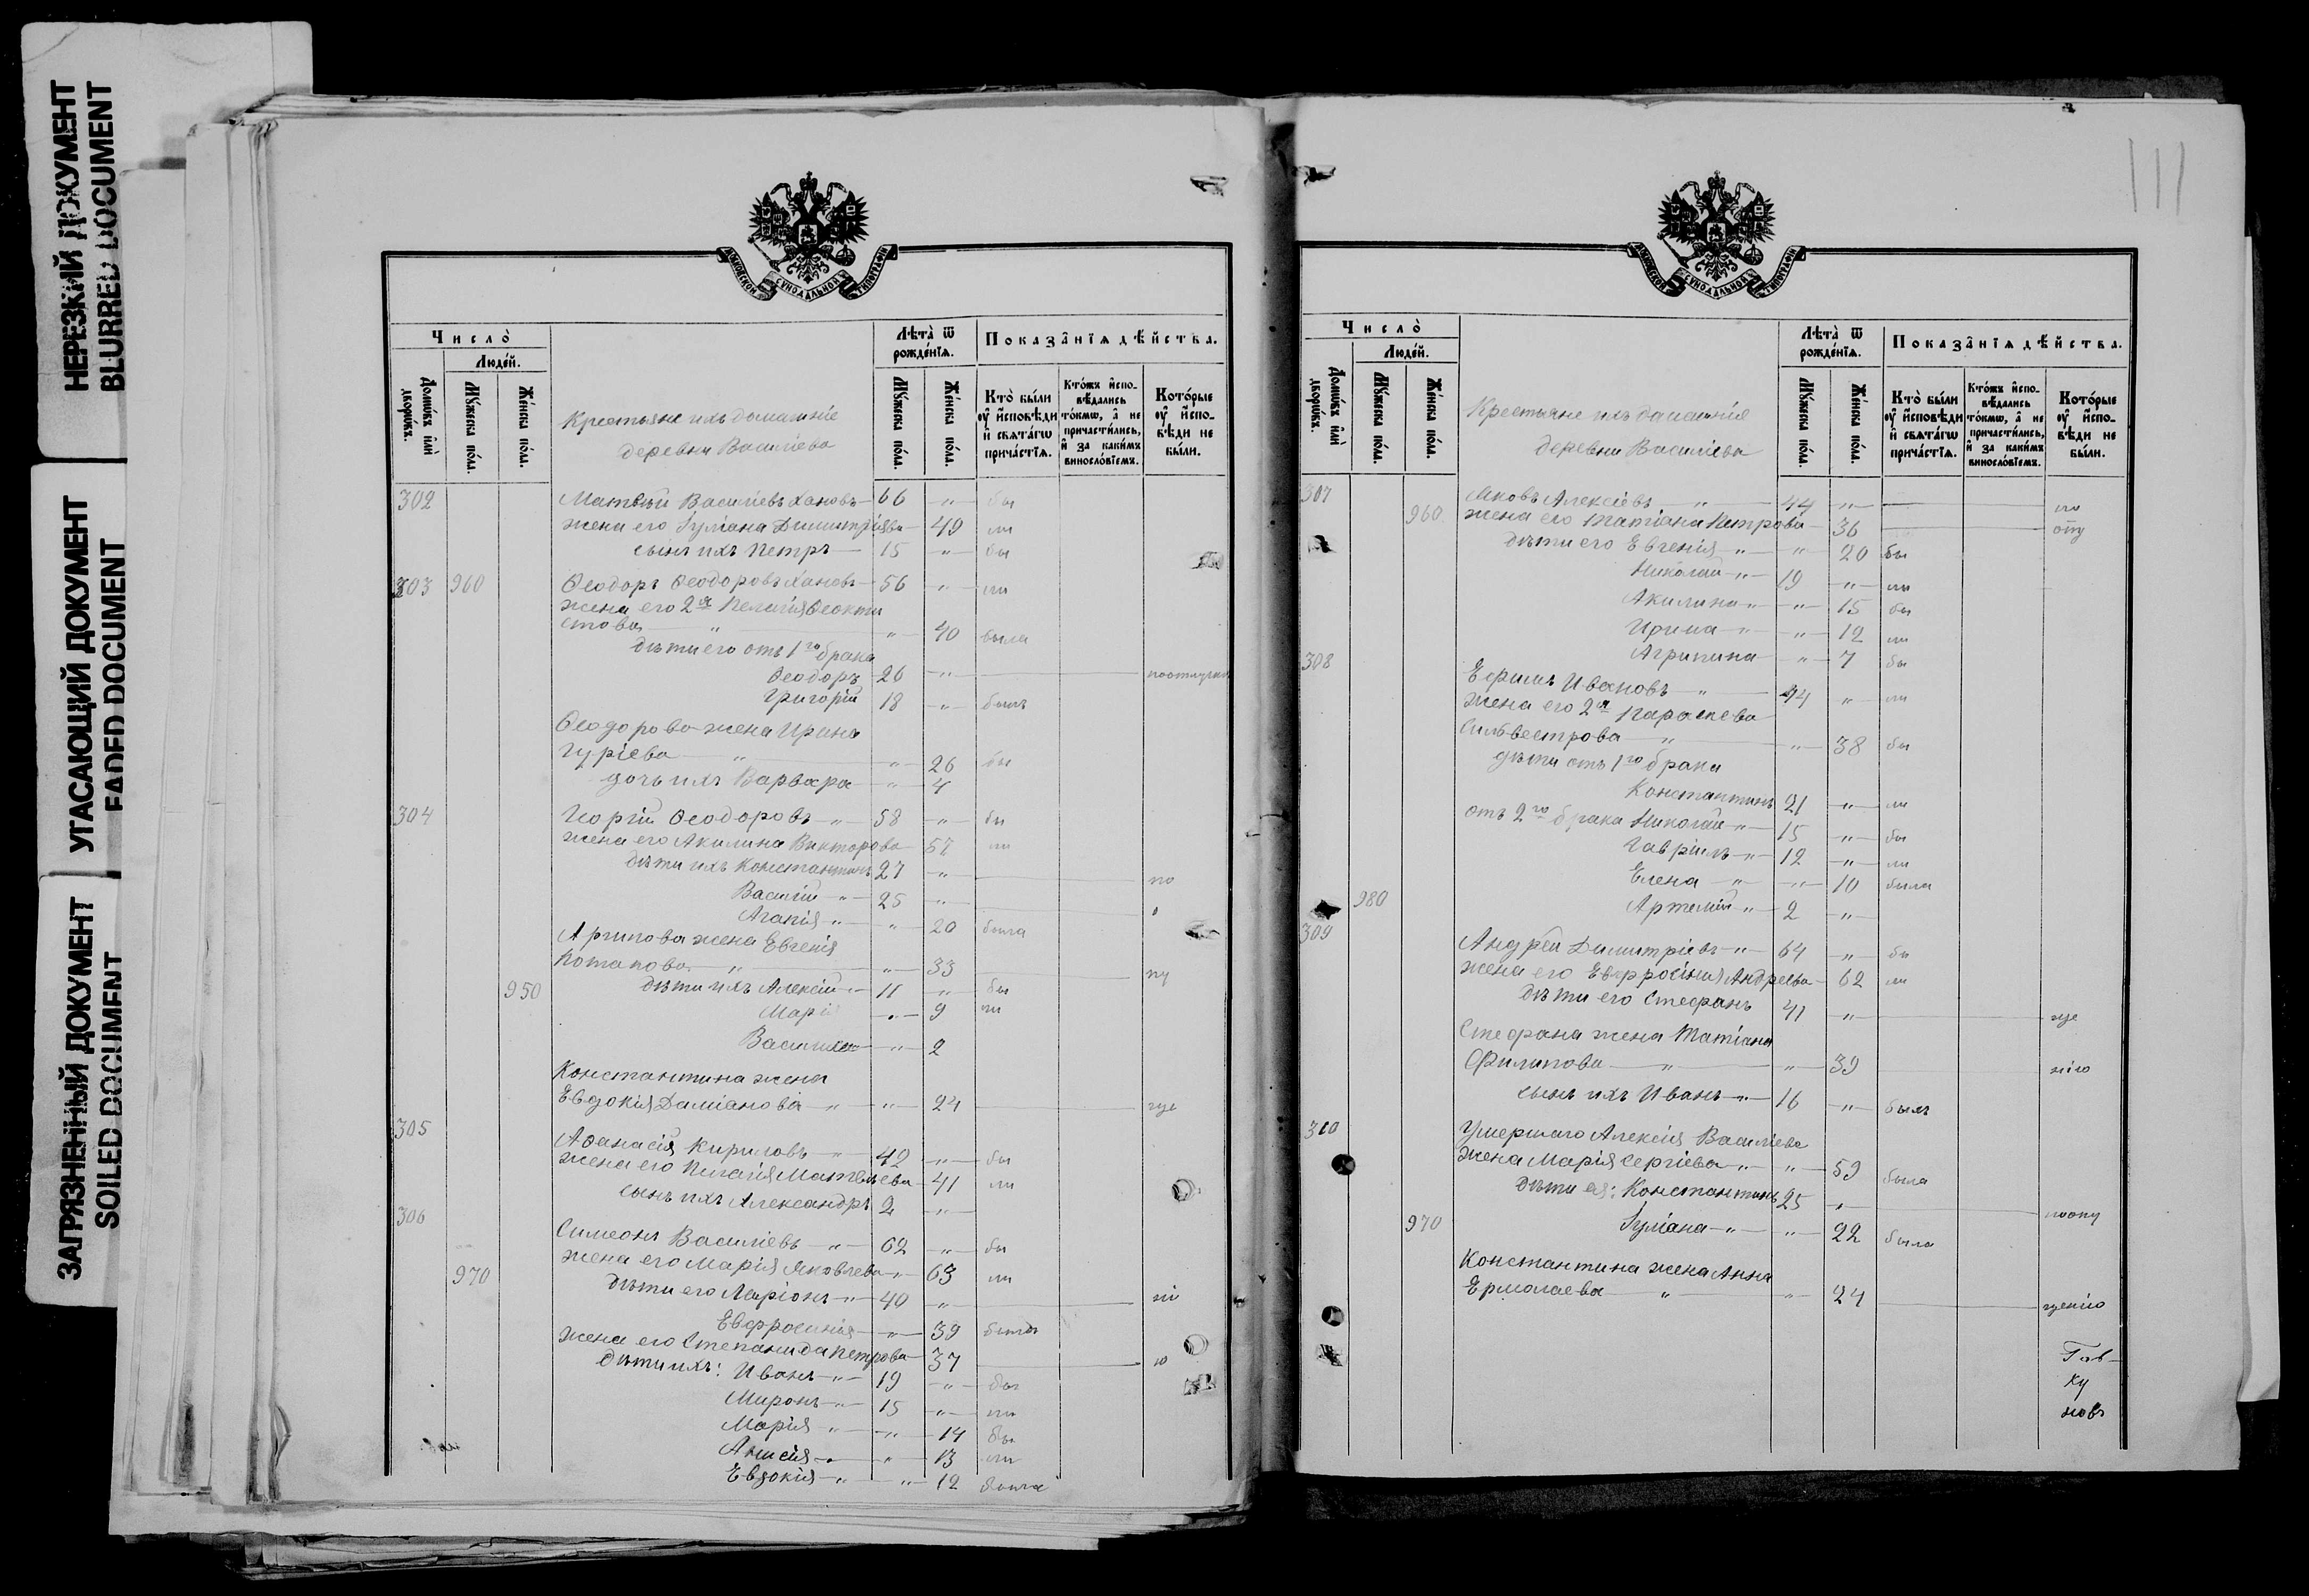 НЕРЕЗКИЙ ДОКУМЕНТ
BLURRED DOCUMENT
УГАСАЮЩИЙ ДОКУМЕНТ
FADED DOCUMENT
ЗАГРЯЗНЕННЫЙ ДОКУМЕНТ
SOILED DOCUMENT
МОСКОВСКОЙ СѴНОДАЛЬНОЙ ТИПОГРАФІИ
Число̀
Люде́й.
Домѡ́въ и҆лѝ дворѡ́въ.
Мꙋ́жеска по́ла.
Же́нска по́ла.
Крестьяне ихъ домашніе
деревни Василіева
Лѣта̀ ѿ рожде́нїѧ.
Мꙋ́жеска по́ла.
Же́нска по́ла.
Показа̂нїѧ дѣ́йства.
Кто̀ бы́ли ᲂу҆ и҆сповѣ́ди и҆ свѧта́гѡ прича́стїѧ.
Кто́жъ и҆спо- вѣ́дались то́кмѡ, а҆ не причасти́лись, и҆ за каки́мъ винослѡ́вїемъ.
Кото́рые ᲂу҆ и҆спо- вѣ́ди не бы́ли.
302 Матвѣй Василіевъ Хановъ 66 " бы
жена его Іуліана Димитріева 49 ли
сынъ ихъ Петръ 15 " бы
303 960 Ѳеодоръ Ѳеодоровъ Хановъ 56 " ли
жена его 2я Пелагія Ѳеокти
стова " " 40 была
дѣти его отъ 1го брака
Ѳеодоръ 26 "
Григорій 18 " былъ
Ѳеодорова жена Ирина
Гуріева " " 26 бы
дочь ихъ Варвара " 4
304 Георгій Ѳеодоровъ " 58 " бы
жена его Акилина Викторова 57 ли
дѣти ихъ Константинъ 27 " по
Василій " 25 "
Агапія " " 20 была
Архипова жена Евгенія
Потапова " " 33 пу
950 дѣти ихъ Алексій " 11 " бы
Марія " 9 ли
Василиса " 2
Константина жена
Евдокія Даміанова " " 24 ще
305 Аѳанасій Кириловъ " 42 " бы
жена его Пелагія Матвѣева 41 ли
сынъ ихъ Александръ 2 "
306 Симеонъ Василіевъ " 62 " бы
жена его Марія Яковлева " 63 ли
970 дѣти его Ларіонъ " 40 " нію
Евфросинія " 39 была
жена его Степанида Петрова 37 ю
дѣти ихъ: Иванъ " 19 " бы
Миронъ " 15 " ли
Марія " " 14 бы
Анисія " " 13 ли
Евдокія " " 12 была
111
МОСКОВСКОЙ СѴНОДАЛЬНОЙ ТИПОГРАФІИ
Число̀
Люде́й.
Домѡ́въ и҆лѝ дворѡ́въ.
Мꙋ́жеска по́ла.
Же́нска по́ла.
Крестьяне ихъ домашніе
деревни Василіева
Лѣта̀ ѿ рожде́нїѧ.
Мꙋ́жеска по́ла.
Же́нска по́ла.
Показа̂нїѧ дѣ́йства.
Кто̀ бы́ли ᲂу҆ и҆сповѣ́ди и҆ свѧта́гѡ прича́стїѧ.
Кто́жъ и҆спо- вѣ́дались то́кмѡ, а҆ не причасти́лись, и҆ за каки́мъ винослѡ́вїемъ.
Кото́рые ᲂу҆ и҆спо- вѣ́ди не бы́ли.
307 Яковъ Алексіевъ " 44 " по
960 жена его Татіана Петрова 36 отпу
дѣти его Евгенія " " 20 бы
Николай " 19 " ли
Акилина " " 15 бы
Ирина " " 12 ли
Агрипина " 7 бы
308 Ефимъ Ивановъ " 44 " ли
жена его 2я Параскева
Сильвестрова " " 38 бы
дѣти отъ 1го брака
Константинъ 21 " ли
отъ 2го брака Николай " 15 " бы
Гавріилъ " 12 " ли
Елена " " 10 была
980 Артемій " 2 "
309 Андрей Димитріевъ " 64 " бы
жена его Евфросінія Андреева 62 ли
дѣти его Стефанъ 41 " ще
Стефана жена Татіана
Филипова " " 39 нію
сынъ ихъ Иванъ " 16 " былъ
310 Умершаго Алексія Василіева
жена Марія Сергіева " " 59 была
дѣти ея: Константинъ 25 " поопу
970 Іуліана " " 22 была
Константина жена Анна
Ермолаева " " 24 щенію
Гав-
ку
новъ